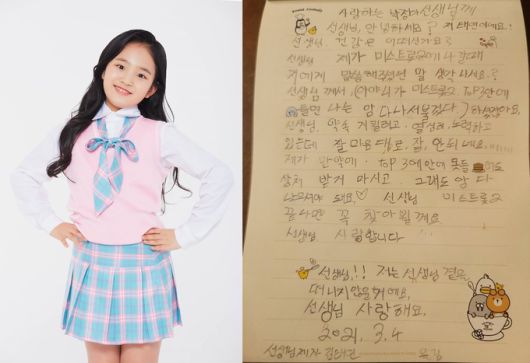 사랑하는 박정아선생님께
선생님, 안녕하세요? 저 태연이에요!
선생님 건강은 어떠신가요?
선생님 제가 미스트롯2에 나갈때
저에게 말씀해주셨던 말 생각 나세요?
선생님께서 (아이가 미스트롯2, TOP3안에
들면 나는 암 다 나서울겄다) 하셨잖아요,
선생님, 약속 거 될려고, 열심히, 노력하고
있는데 잘 마음대로, 잘, 안되네요
제가 만약에, TOP 3에안에 못들어도
상처 받거 마시고, 그래도 암 다
나으셔야 돼요♡ 선생님 미스트롯2
끝나면 꼭 찾아뵐께요
선생님 사랑합니다
선생님!! 저는 선생님 곁을
떠나지 않을거예요,
선생님 사랑해요,
2021, 3.4
선생님제자 김태연 올림